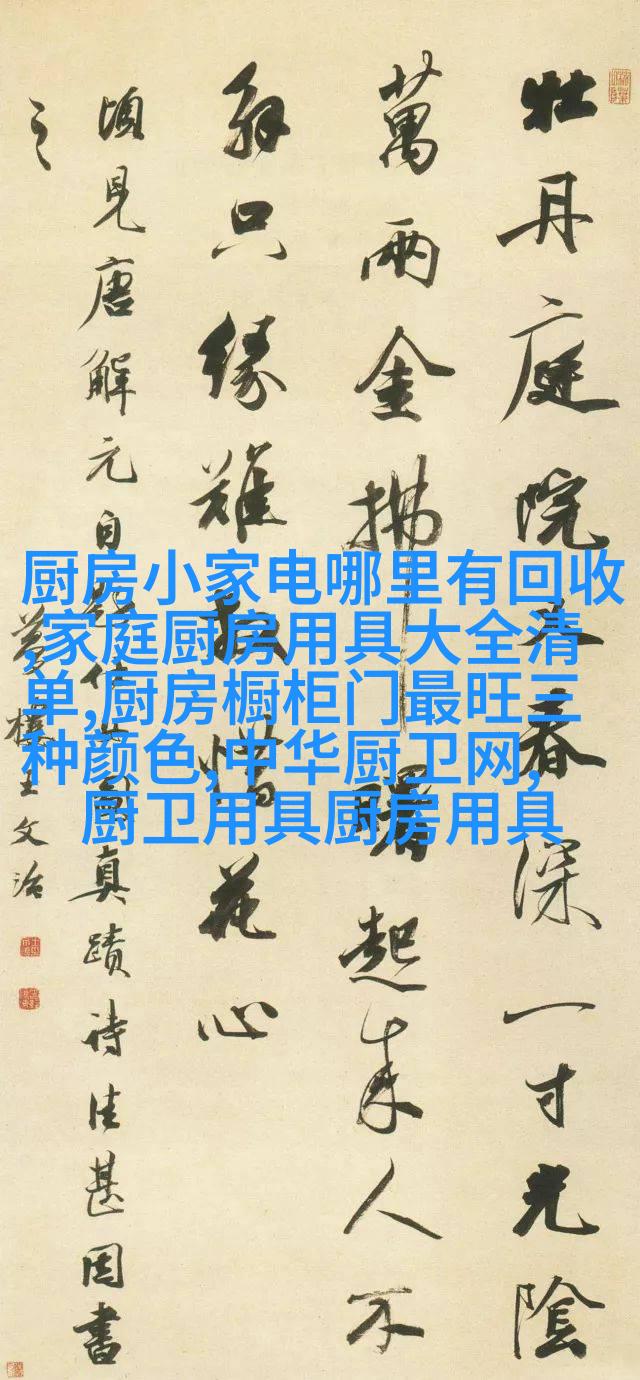 牡丹庭院又春深一寸光陰
萬兩金拂曙起來人不
解只緣難放惜花心
頃見唐解元自題仕女圖真蹟詩佳甚因書
之
夢樓王文治
厨房小家电哪里有回收
,家庭厨房用具大全清
单,厨房橱柜门最旺三
种颜色,中华厨卫网,
厨卫用具厨房用具